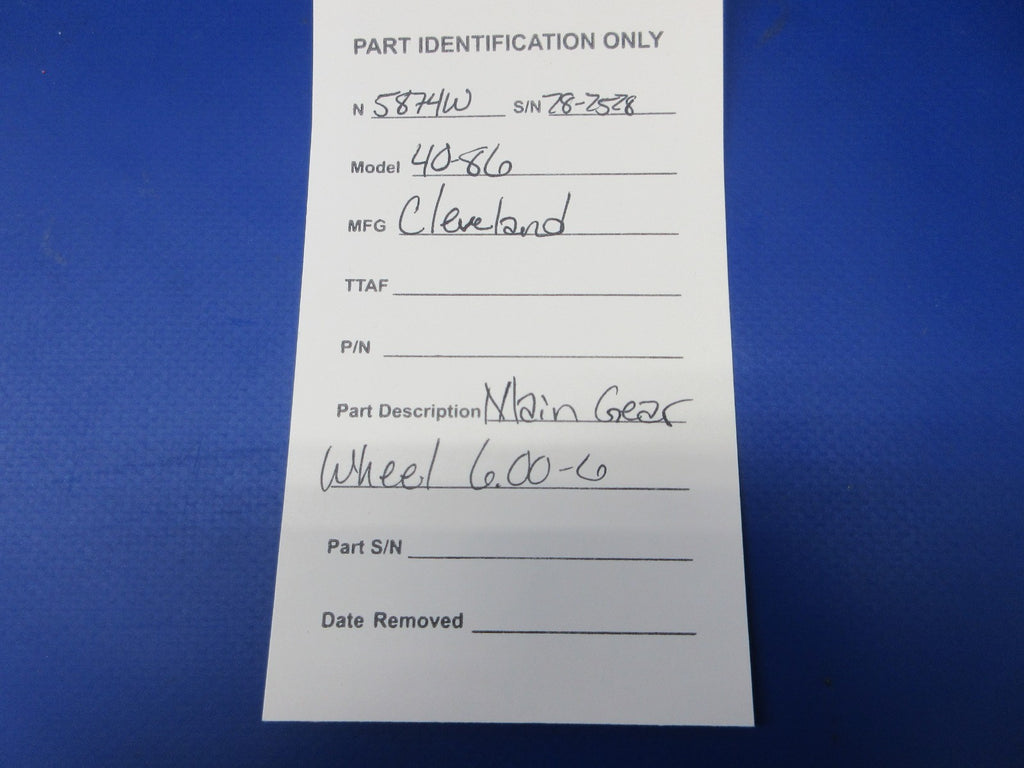 PART IDENTIFICATION ONLY
N 5874W S/N 28-7528
Model 40-86
MFG Cleveland
TTAF
P/N
Part Description Main Gear
Wheel 6.00-6
Part S/N
Date Removed